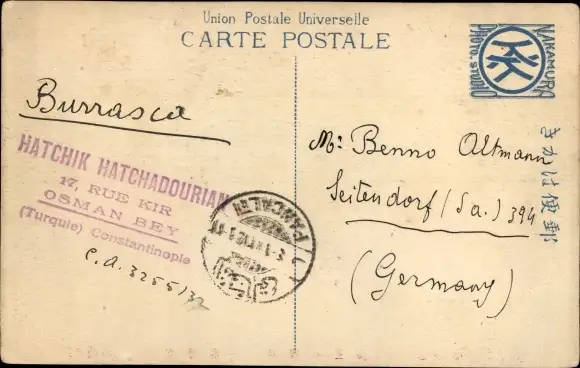 Union Postale Universelle
CARTE POSTALE
NAKAMURA
PHOTO-STUDIO
きかは便郵
Burrasca
HATCHIK HATCHADOURIAN
17, RUE KIR
OSMAN BEY
(Turquie) Constantinople
C.A. 3255/32
PANCALDI
Mr. Benno Altmann
Seitendorf (Sa.) 394
(Germany)